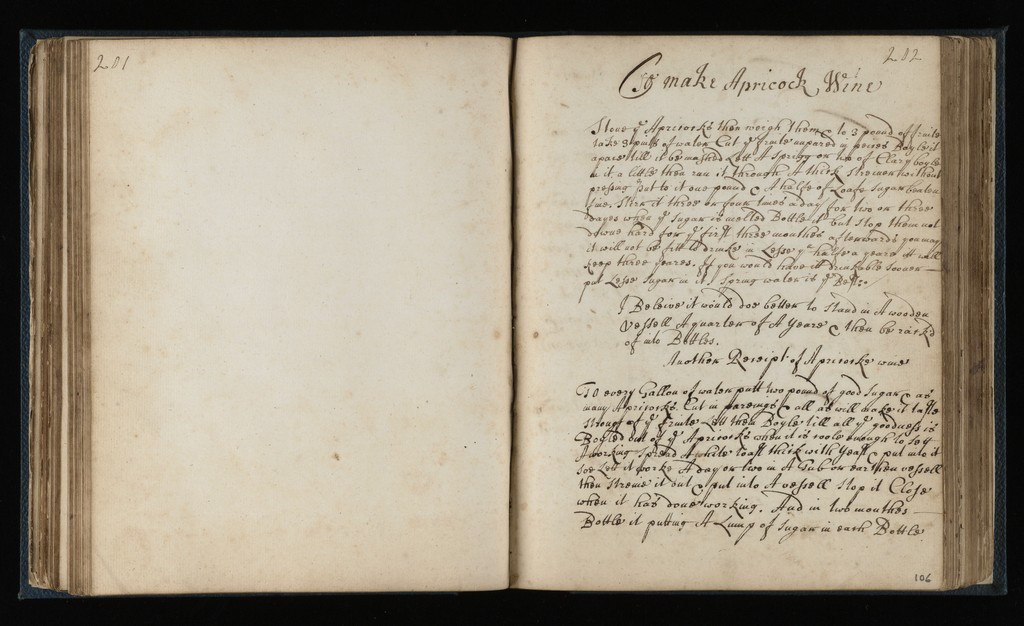 201
202
To make Apricock Wine
Stone ye Apricocks then weigh them & to 3 pound of fruite
take 3 quts of water Cut ye fruite unpared in peices Boyle it
apace till it be mashed Lett A Sprigg or two of Clary boyle
in it a little then run it through A thick Streiner without
pressing put to it one pound & A halfe of Loafe Sugar beaten
fine. Stirr it three or four times a day for two or three
dayes when ye Sugar is melted Bottle it but stop them not
downe hard for ye first three monthes afterwards you may
it will not be fitt to drinke in Lesse yn halfe a yeare it will
keep three yeares. If you would have it drinkable sooner
put Lesse Sugar in it / Spring water is ye Best.
I Beleive it would doe better to Stand in A wooden
Vessell A quarter of A Yeare & then be rack'd
of into Bottles.
Another Receipt of Apricocke wine
To every Gallon of water putt two pound of good Sugar & as
many Apricocks Cut in pareings & all as will make it taste
strong of ye fruite Lett them Boyle till all ye goodness is
Boyled out of ye Apricocks when it is coole enough to sett
A working spread A white toast thick with Yeast & put into it
soe Lett it worke A day or two in A Tub or earthen vessell
then streine it out & put into A vessell stop it Close
when it has done working. And in two monthes
Bottle it putting A Lump of Sugar in each Bottle
106